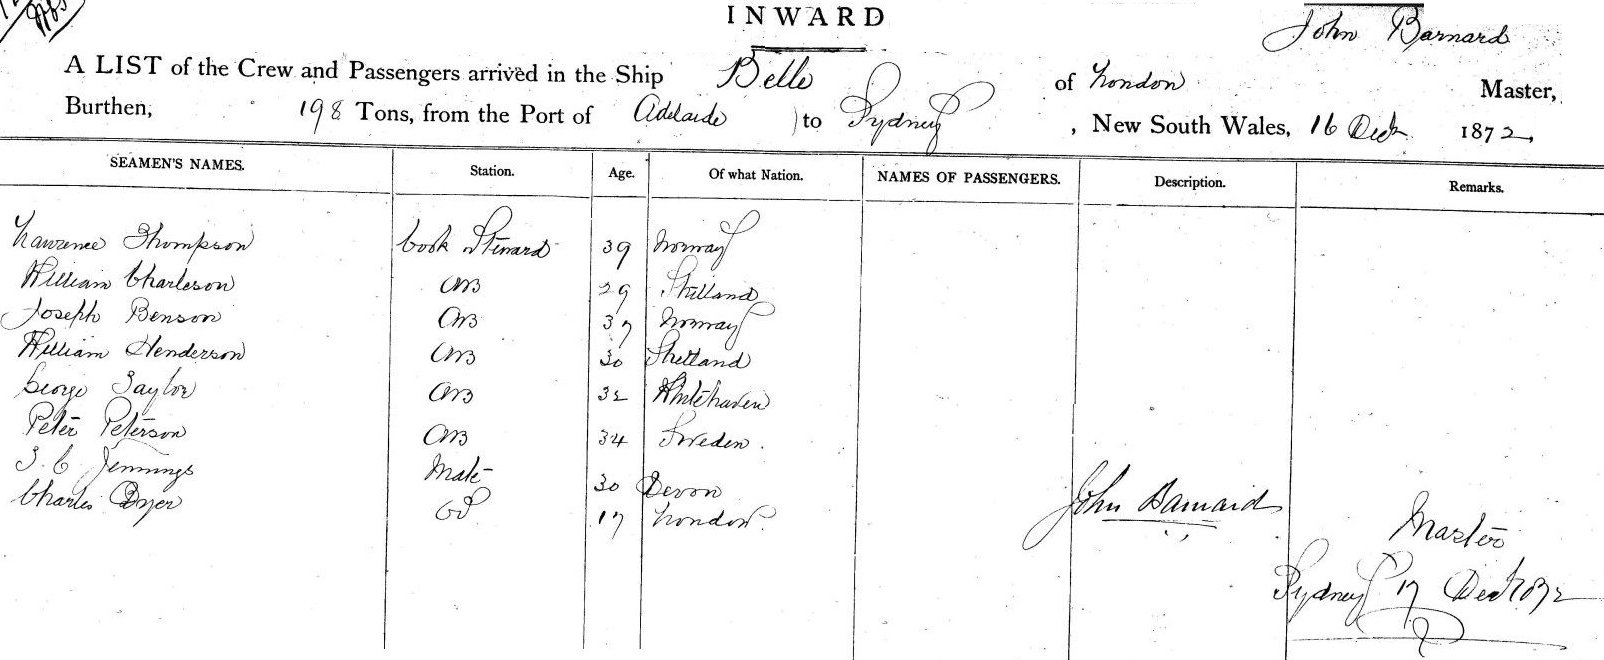 INWARD
John Barnard
A LIST of the Crew and Passengers arrived in the Ship Belle of London Master,
Burthen, 198 Tons, from the Port of Adelaide to Sydney, New South Wales, 16 Decr 1872,
SEAMEN'S NAMES. Station. Age. Of what Nation. NAMES OF PASSENGERS. Description. Remarks.
Lawrence Thompson Cook Steward 39 Norway
William Charleson AB 29 Shetland
Joseph Benson AB 37 Norway
William Henderson AB 30 Shetland
George Taylor AB 32 Whitehaven
Peter Peterson AB 34 Sweden.
J. C Jennings Mate 30 Devon
Charles Dyer OS 17 London.
John Barnard
Master
Sydney 17 Decr 1872